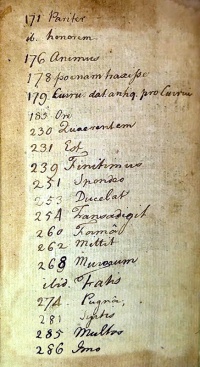 171 Pariter
ib. honorem
176 Animus
178 poenam
179 Curru dat antiq. pro Currui
183 Ore
230 Quaerentem
231 Est
239 Finitimus
251 Spondeo
253 Ducebat
254 Transadigit
260 Formâ
262 Mittit
268 Murorum
ibid. Fatis
274 Pugnâ
281 Justis
285 Multos
286 Imo